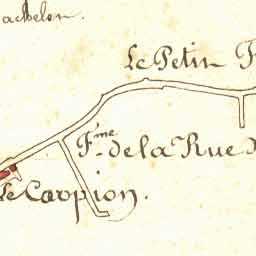 achelon.
Le Petin F
F.me de la Rue
Le Carpion.